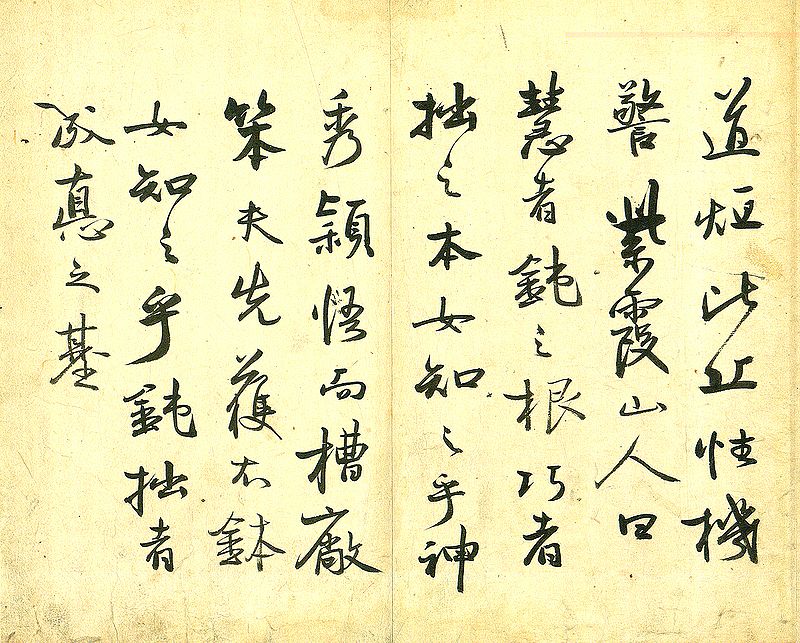 道恒比丘性機
警紫霞山人曰
慧者鈍之根巧者
拙之本女知之乎神
秀穎悟而槽廠
笨夫先獲衣鉢
女知之乎鈍拙者
成悳之基